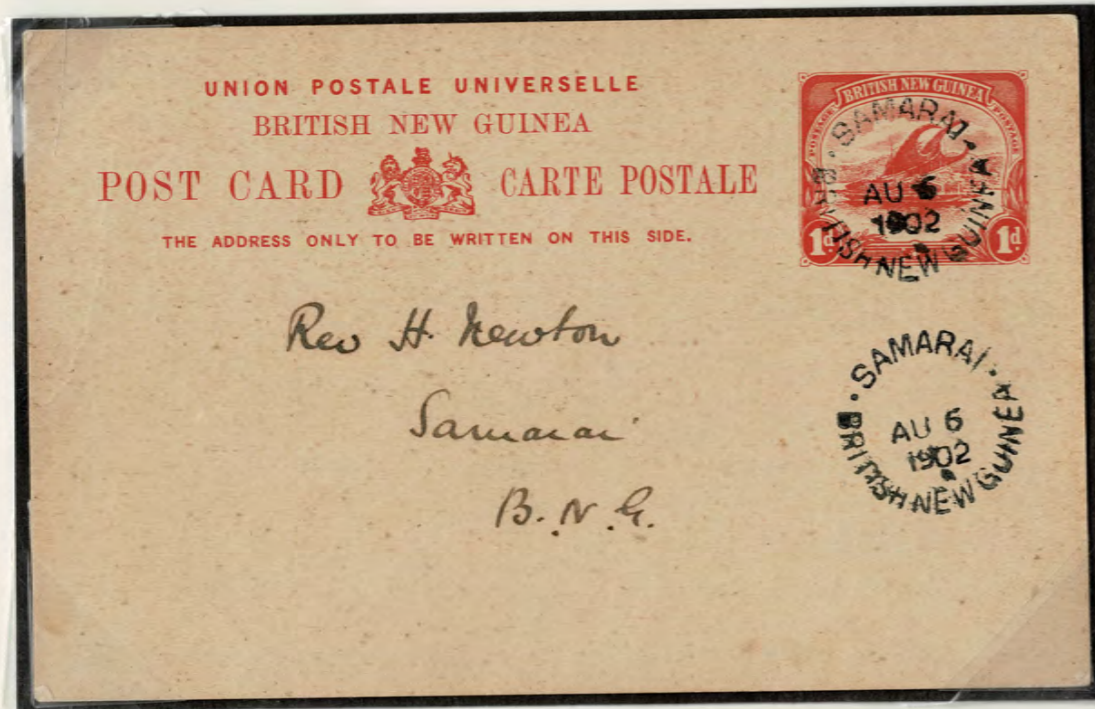 UNION POSTALE UNIVERSELLE
BRITISH NEW GUINEA
POST CARD CARTE POSTALE
THE ADDRESS ONLY TO BE WRITTEN ON THIS SIDE.
BRITISH NEW GUINEA
POSTAGE
POSTAGE
1d.
1d.
SAMARAI
AU 6
1902
BRITISH NEW GUINEA
Rev H. Newton
Samarai
B.N.G.
SAMARAI
AU 6
1902
BRITISH NEW GUINEA